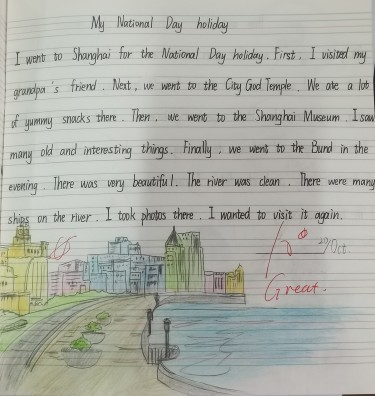 My National Day holiday
I went to Shanghai for the National Day holiday. First, I visited my
grandpa's friend. Next, we went to the City God Temple. We ate a lot
of yummy snacks there. Then, we went to the Shanghai Museum. I saw
many old and interesting things. Finally, we went to the Bund in the
evening. There was very beautiful. The river was clean. There were many
ships on the river. I took photos there. I wanted to visit it again.
Great.